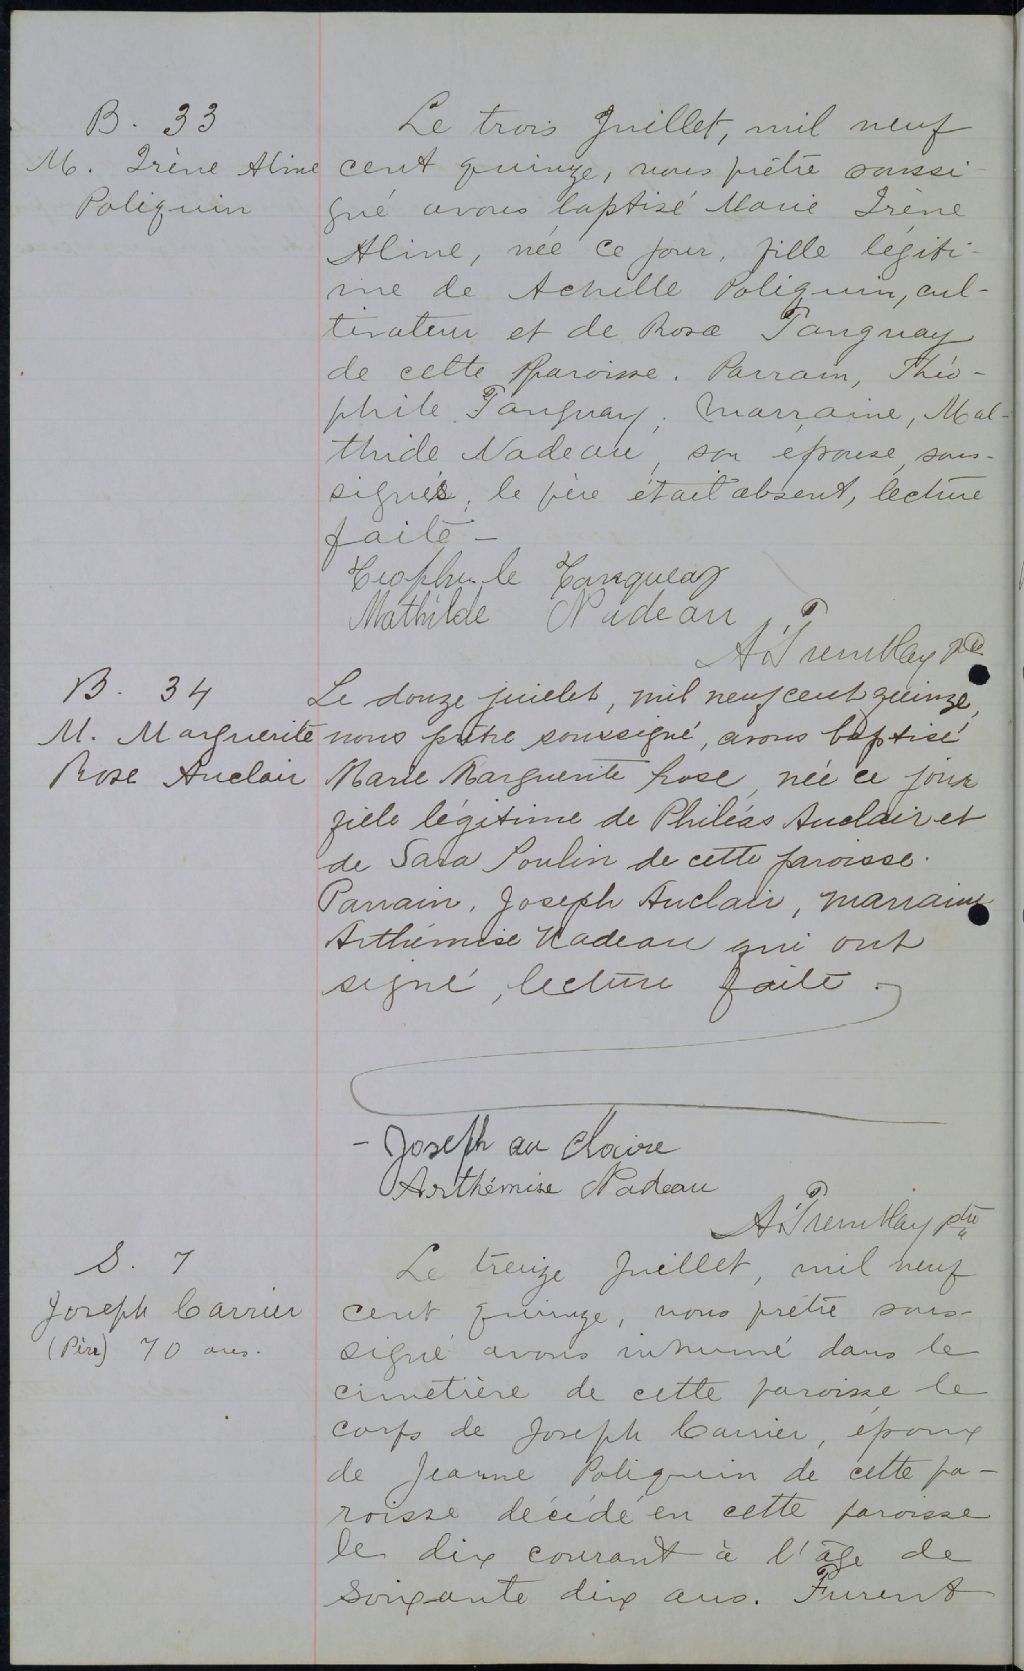 B. 33
M. Irène Aline
Poliquin
Le trois Juillet, mil neuf
cent quinze, nous prêtre soussi-
gné avons baptisé Marie Irène
Aline, née ce jour, fille légiti-
me de Achille Poliquin, cul-
tivateur et de Rose Tanguay
de cette Paroisse. Parrain, Théo-
phile Tanguay, marraine, Mal-
thide Nadeau, son épouse, sous-
signés, le père était absent, lecture
faite -
Teophile Tanguay
Mathilde Nadeau
A. Tremblay ptre
B. 34
M. Marguerite
Rose Auclair
Le douze juillet, mil neuf cent quinze,
nous prêtre soussigné, avons baptisé
Marie Marguerite Rose, née ce jour
fille légitime de Philéas Auclair et
de Sara Poulin de cette paroisse.
Parrain, Joseph Auclair, marraine
Arthémise Nadeau qui ont
signé, lecture faite.
- Joseph au Claire
Arthémise Nadeau
A. Tremblay ptre
S. 7
Joseph Carrier
(Père) 70 ans.
Le treize Juillet, mil neuf
cent quinze, nous prêtre sous-
signé avons inhumé dans le
cimetière de cette paroisse le
corps de Joseph Carrier, époux
de Jeanne Poliquin de cette pa-
roisse décédé en cette paroisse
le dix courant à l'âge de
soixante dix ans. Furent